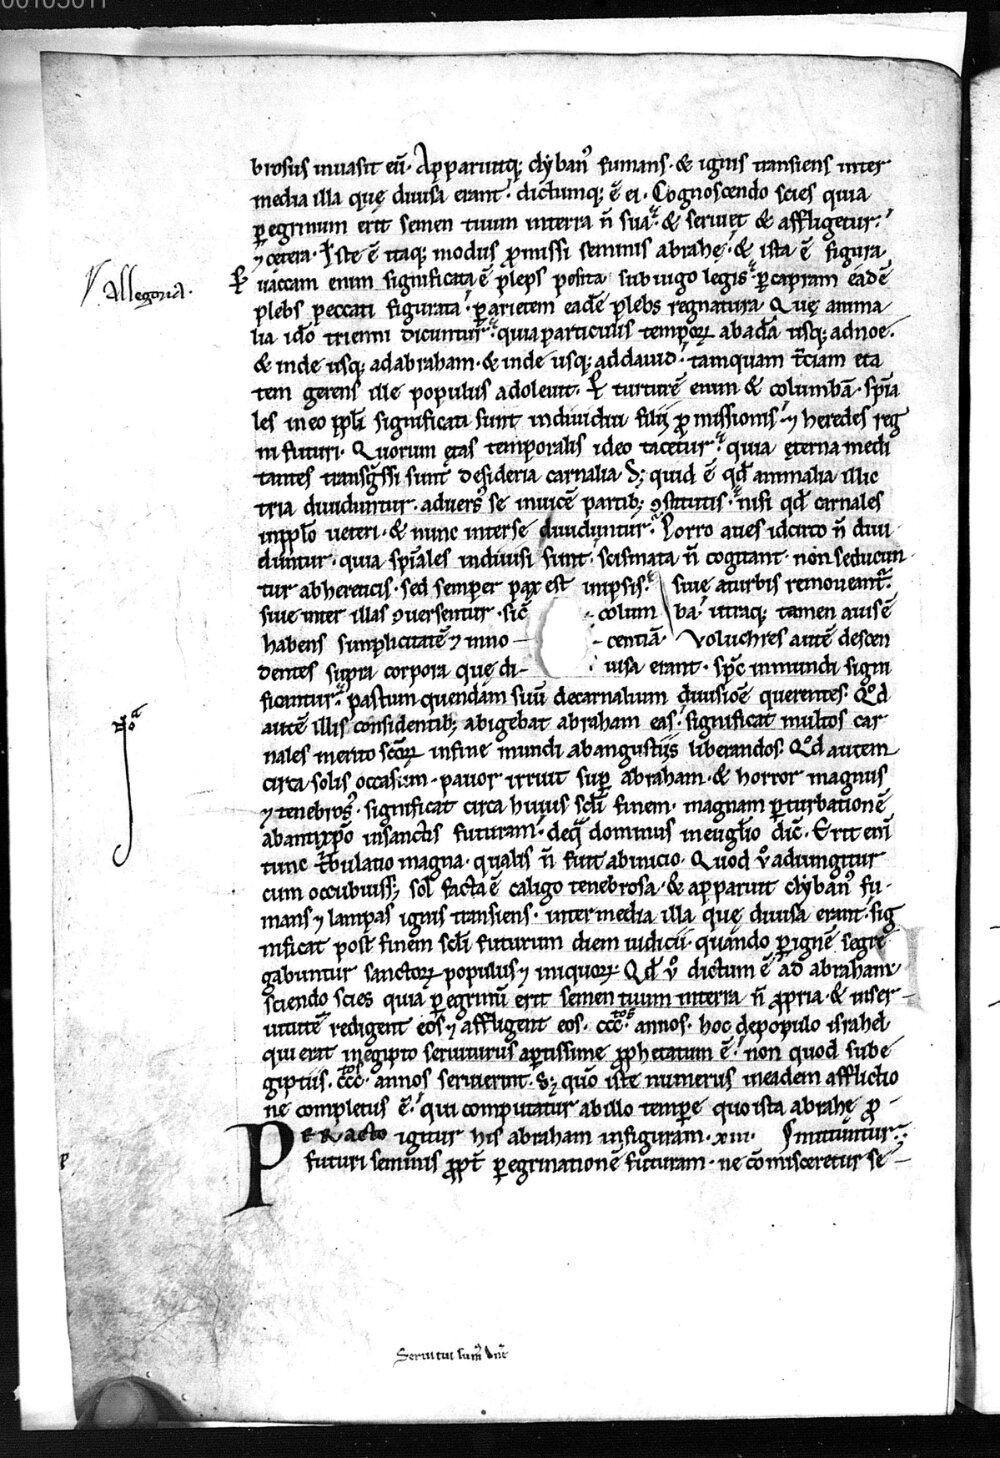 00105011
brosus inuasit eū. Apparuitq; clyban᷒ fumans. & ignis transiens inter
media illa quę diuisa erant. dictumq; ē ei. Cognoscendo scies quia
ꝑegrinum erit semen tuum interra n̄ sua. & seruiet & affligetur.
⁊ cetera. Iste ē itaq; modus ꝓmissi seminis abrahę. & ista ē figura.
Per uaccam enim significata ē plebs posita subiugo legis. ꝑcapram eadē
Allegoria.
plebs peccati figurata. ꝑarietem eadē plebs regnatura. Quę anima
lia idō trienni dicuntur. quia particulis tempoꝝ abadā usq; adnoe.
& inde usq; adabraham. & inde usq; addauid. tamquam t̄ciam eta
tem gerens ille populus adoleuit. Per turturē enim & columbā. spīa
les ineo ppl̄i significati sunt indiuidui filii ꝓmissionis. ⁊ heredes reg
ni futuri. Quorum ętas temporalis ideo tacetur. quia ęterna medi
tantes transg̃ssi sunt desideria carnalia. S; quid ē qd̄ animalia illic
tria diuiduntur. aduers᷒ se inuicē partib; ꝯstitutis. nisi qd̄ carnales
inpplō ueteri. & nunc interse diuiduntur. Porro aues idcirco n̄ diui
duntur. quia spīales indiuisi sunt. scismata n̄ cogitant. non seducun
tur abhereticis. sed semper pax est inipsis. siue aturbis remoueant᷒.
siue inter illas ꝯuersentur. sic̄ columba. utraq; tamen auis ē
habens simplicitatē ⁊ innocentiā. Volucres autē descen
dentes supra corpora quę diuisa erant. sp̄c inmundi signi
ficantur. pastum quendam suū decarnalium diuisiōe querentes. Qd̄
autē illis considentib; abigebat abraham eas. significat multos car
nales merito scōꝝ infine mundi abangustiis liberandos. Qd̄ autem
No͏ͣ
circa solis occasum. pauor irruit suꝑ abraham. & horror magnus
⁊ tenebros᷒. significat circa huius scl̄i finem. magnam ꝑturbationē
abantixp̄o insanctis futuram. deq̄ dominus ineuglīo dic̄. Erit enī
tunc t̄bulatio magna. qualis n̄ fuit abinicio. Quod v̊ adiungitur
cum occubuiss; sol facta ē caligo tenebrosa. & apparuit clyban᷒ fu
mans ⁊ lampas ignis transiens. intermedia illa quę diuisa erant. sig
nificat post finem scl̄i futurum diem iudicii. quando ꝑignē segre
gabuntur sanctoꝝ populus ⁊ iniquoꝝ. Qd̄ v̊ dictum ē ad abraham
sciendo scies quia ꝑegrinū erit semen tuum interra n̄ ꝓpria. & inser
uitutē redigent eos ⁊ affligent eos. cccc.tos annos. hoc depopulo israhel
qui erat inegipto seruiturus apertissime ꝓphetatum ē. non quod sube
giptiis. cccc.tos annos seruierint. S; quō iste numerus ineadem afflictio
ne completus ē. qui computatur abillo tempore quo ista abrahę ꝓ
mittuntur.
PERacto igitur his abraham infiguram. xiii.
futuri seminis ꝓpt̄ ꝑegrinationē futuram. ne cōmisceretur se